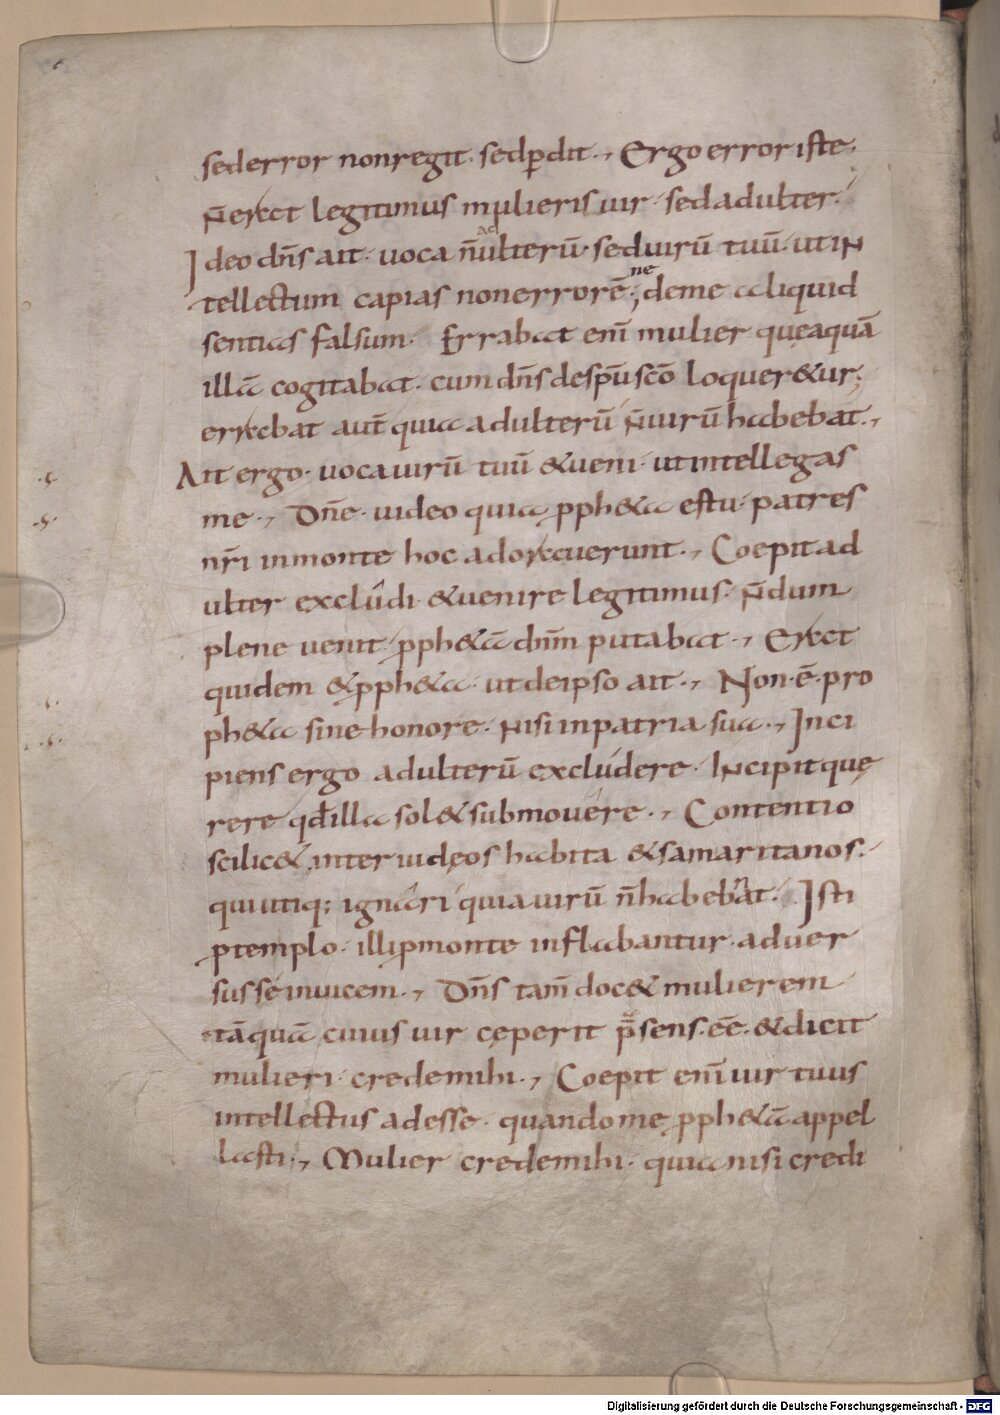 sed error non regit · sed ꝑdit ·, Ergo error iste
n̄ erat legitimus mulieris uir · sed adulter ·
Ideo dn̄s ait · uoca n̄ adulterū · sed uirū tuū · ut in
tellectum capias non errorē · ne de me aliquid
sentias falsum · Errabat eni̅ mulier que aquā
illā cogitabat · cum dn̄s de sp̄u sc̄o loquer&ur ·
errabat aut̄ quia adulterū n̄ uirū habebat ·,
Ait ergo · uoca uirū tuū & ueni · ut intellegas
me ·, Dn̄e · uideo quia pph&a es tu · patres
nr̄i in monte hoc adorauerunt ·, Coepit ad
ulter excludi · & uenire legitimus · n̄dum
plene uenit · pph&ā dnm̄ putabat ·, Erat
quidem & pph&a · ut de ipso ait ·, Non · ē · pro
ph&a sine honore · nisi in patria sua ·, Inci
piens ergo adulterū excludere · Incipit quę
rere qđ illa sol& submouere ·, Contentio
scilic& inter iudęos habita & samaritanos ·
qui utiq; ignari quia uirū n̄ habebant · Isti
ꝓ templo · illi ꝓ monte inflabantur · aduer
sus se inuicem ·, Dn̄s tam̄ doc& mulierem
tāquā cuius uir cęperit p̄sens · eē · & dicit
mulieri · crede mihi ·, Coepit eni̅ uir tuus
intellectus adesse · quando me pph&ā appel
lasti ·, Mulier crede mihi · quia nisi credi
Digitalisierung gefördert durch die Deutsche Forschungsgemeinschaft - DFG